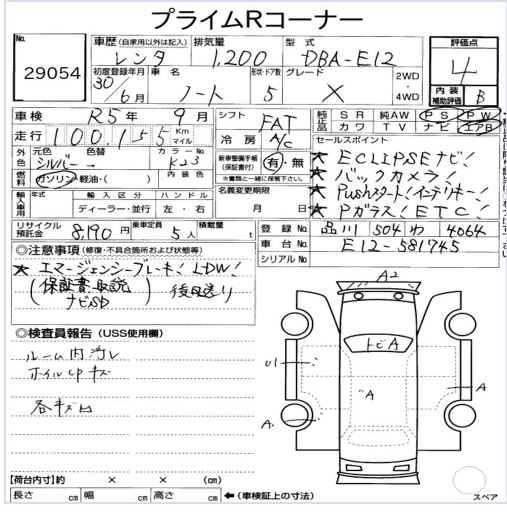 プライムRコーナー
No. 29054
車歴 (自家用以外は記入) レンタ
排気量 1,200
型式 DBA-E12
評価点 4
内装補助評価 B
初度登録年月 30/6月
車名 ノート
形状・ドア数 5
グレード X
2WD・4WD
車検 R5年9月
シフト FAT
純正品 SR 純AW PS PW
カワ TV ナビ エアB
走行 100,155 Km マイル
冷房 A/C
セールスポイント
外色 元色 シルバー 色替
カラーNo. K23
新車整備手帳(保証書) 有・無
※書類と一緒に保管下さい。
★ECLIPSEナビ!
★バックカメラ!
★Pushスタート!インテリキー!
★Pガラス!ETC!
燃料 ガソリン・軽油・( )
内装色
名義変更期限 月 日
輸入車用 年式 輸入区分 ハンドル
ディーラー・並行 左・右
リサイクル預託金 8190円
乗車定員 5人
積載量 t
登録No. 品川 504 わ 4064
車台No. E12-581745
シリアルNo.
◎注意事項 (修復・不具合箇所および状態等)
★エマージェンシーブレーキ!LDW!
(保証書.取説 ナビSD) 後日送り
◎検査員報告 (USS使用欄)
ルーム内汚レ
ホイルCPキズ
各キズ凹
A2
トビA
U1
A
A
A
【荷台内寸】約 × × (cm)
長さ cm 幅 cm 高さ cm ←(車検証上の寸法)
スペア